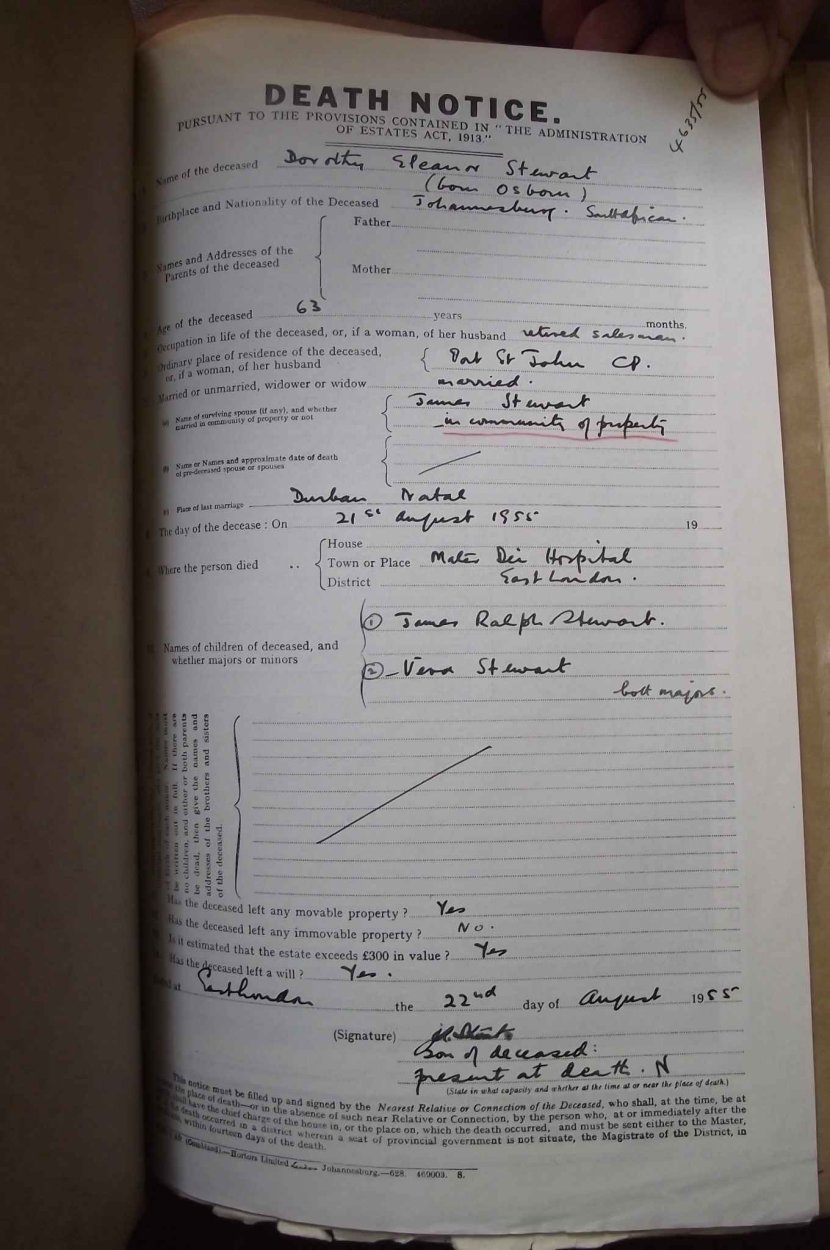 4635/55
DEATH NOTICE.
PURSUANT TO THE PROVISIONS CONTAINED IN "THE ADMINISTRATION
OF ESTATES ACT, 1913."
Name of the deceased Dorothy Eleanor Stewart
(born Osborn)
Birthplace and Nationality of the Deceased Johannesburg. South African.
Names and Addresses of the
Parents of the deceased
Father
Mother
Age of the deceased 63 years months.
Occupation in life of the deceased, or, if a woman, of her husband retired salesman.
Ordinary place of residence of the deceased,
or, if a woman, of her husband
Port St John CP.
Married or unmarried, widower or widow married.
(a) Name of surviving spouse (if any), and whether
married in community of property or not
James Stewart
in community of property
(b) Name or Names and approximate date of death
of pre-deceased spouse or spouses
(c) Place of last marriage Durban Natal
The day of the decease : On 21st August 1955 19
Where the person died ..
House
Town or Place Mater Dei Hospital
District East London.
Names of children of deceased, and
whether majors or minors
① James Ralph Stewart.
② - Vera Stewart
both majors.
be written out in full. If there are
no children, and either or both parents
be dead, then give the names and
addresses of the brothers and sisters
of the deceased.
Has the deceased left any movable property ? Yes
Has the deceased left any immovable property ? No.
Is it estimated that the estate exceeds £300 in value ? Yes
Has the deceased left a will ? Yes.
Dated at East London the 22nd day of August 1955
(Signature)
Son of deceased:
present at death. N
(State in what capacity and whether at the time at or near the place of death.)
This notice must be filled up and signed by the Nearest Relative or Connection of the Deceased, who shall, at the time, be at
the place of death—or in the absence of such near Relative or Connection, by the person who, at or immediately after the
shall have the chief charge of the house in, or the place on, which the death occurred, and must be sent either to the Master,
the death occurred in a district wherein a seat of provincial government is not situate, the Magistrate of the District, in
within fourteen days of the death.
(Combined).—Hortors Limited Johannesburg.—628. 469003. 8.